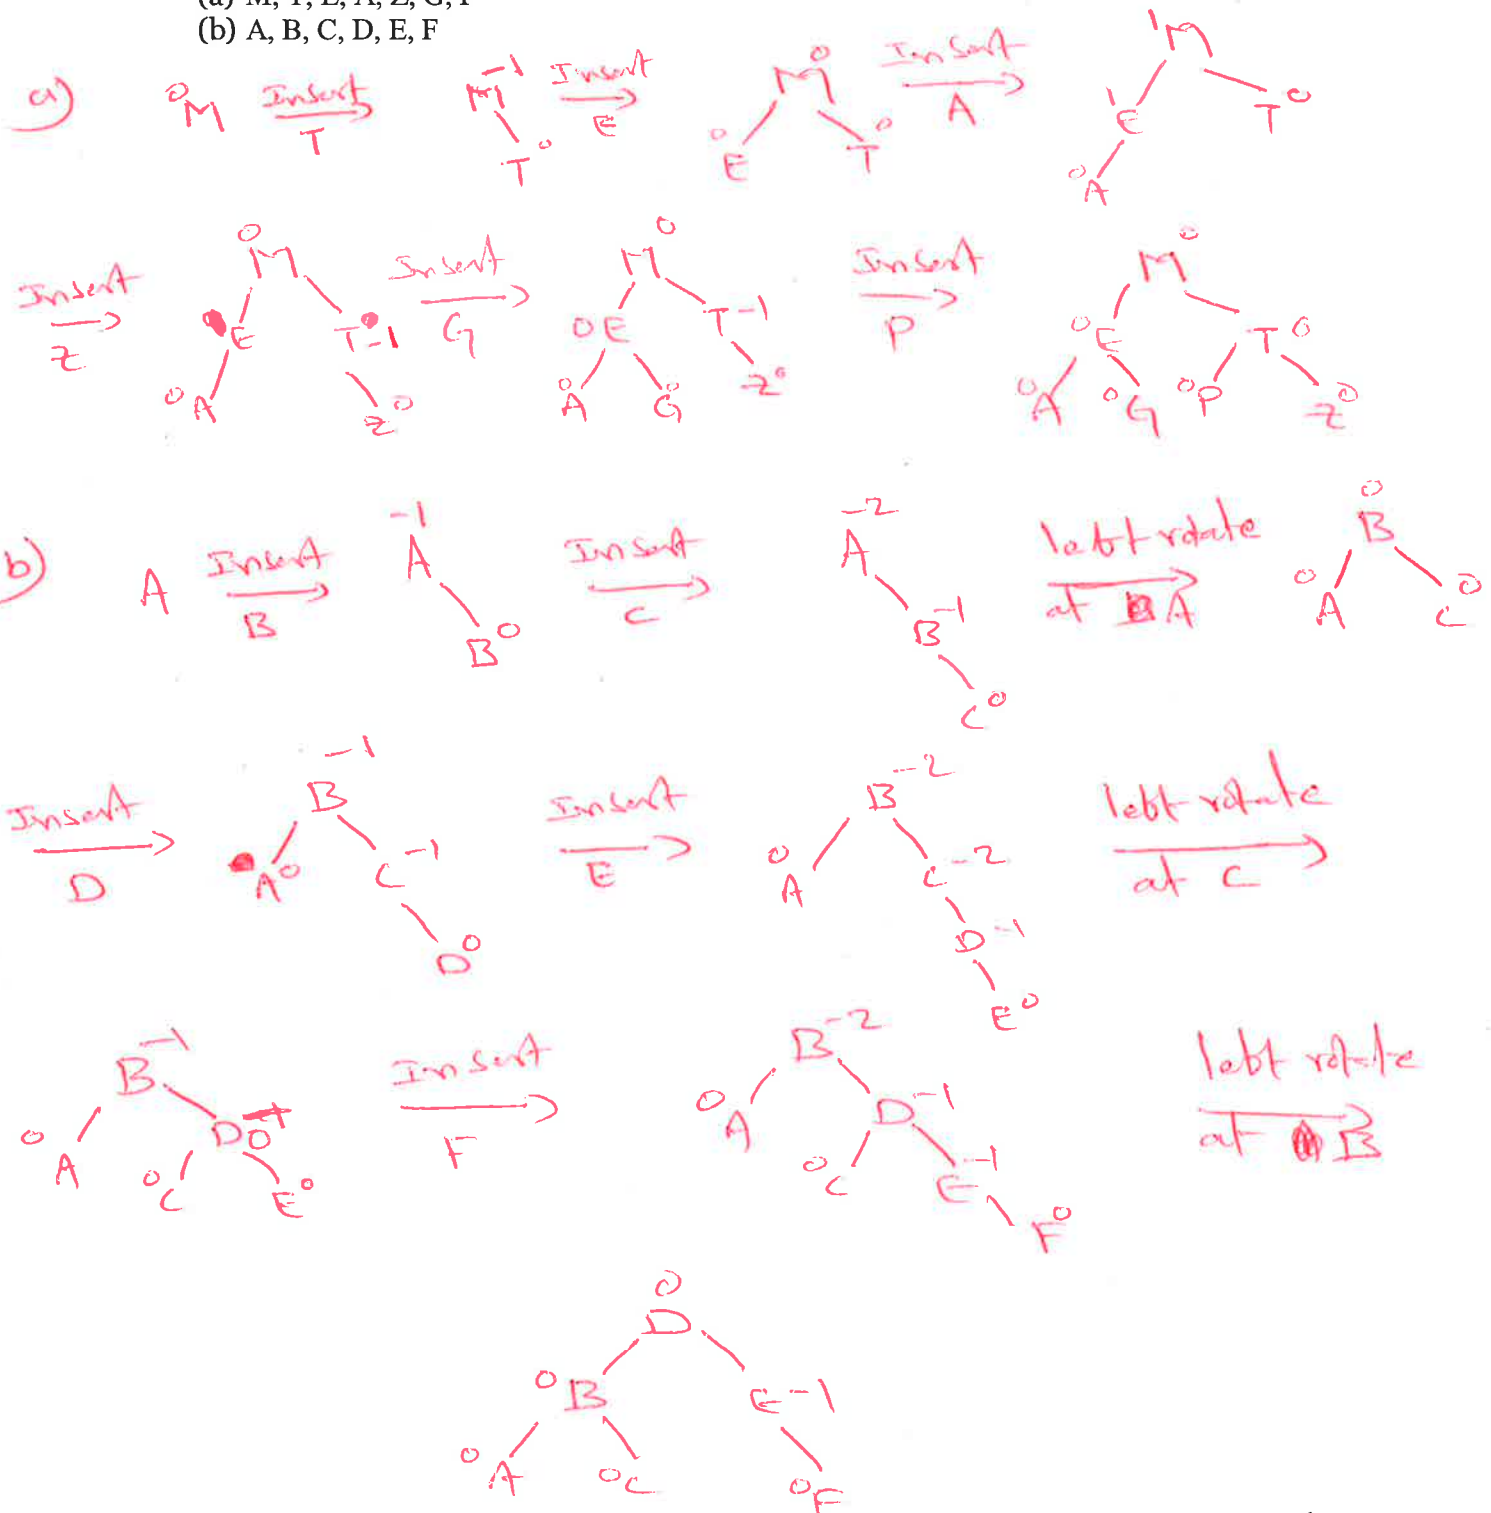 (a) M, T, E, A, Z, G, P
(b) A, B, C, D, E, F
a) 0 M Insert T M -1 T 0 Insert E M 0 0 E T 0 Insert A 1 M 1 E T 0 0 A
Insert Z 0 M E T -1 0 A Z 0 Insert G 0 M 0 E T -1 0 A 0 G Z 0 Insert P M 0 0 E T 0 0 A 0 G 0 P Z 0
b) A Insert B -1 A B 0 Insert C -2 A B -1 C 0 left rotate at A 0 B 0 A C 0
Insert D -1 B A 0 C -1 D 0 Insert E B -2 0 A C -2 D -1 E 0 left rotate at C
B -1 0 A D 0 0 C E 0 Insert F B -2 0 A D -1 0 C E -1 F 0 left rotate at B
0
D
0 B E -1
0 A 0 C 0 F